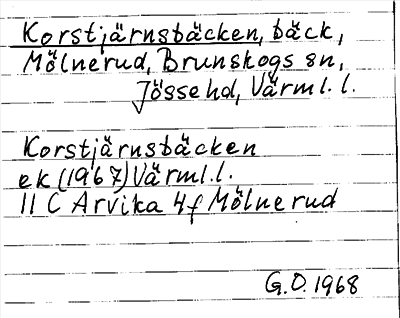 Korstjärnsbäcken, bäck,
Mölnerud, Brunskogs sn,
Jösse hd, Värml. l.
Korstjärnsbäcken
ek (1967) Värml. l.
11 C Arvika 4f Mölnerud
G.O. 1968